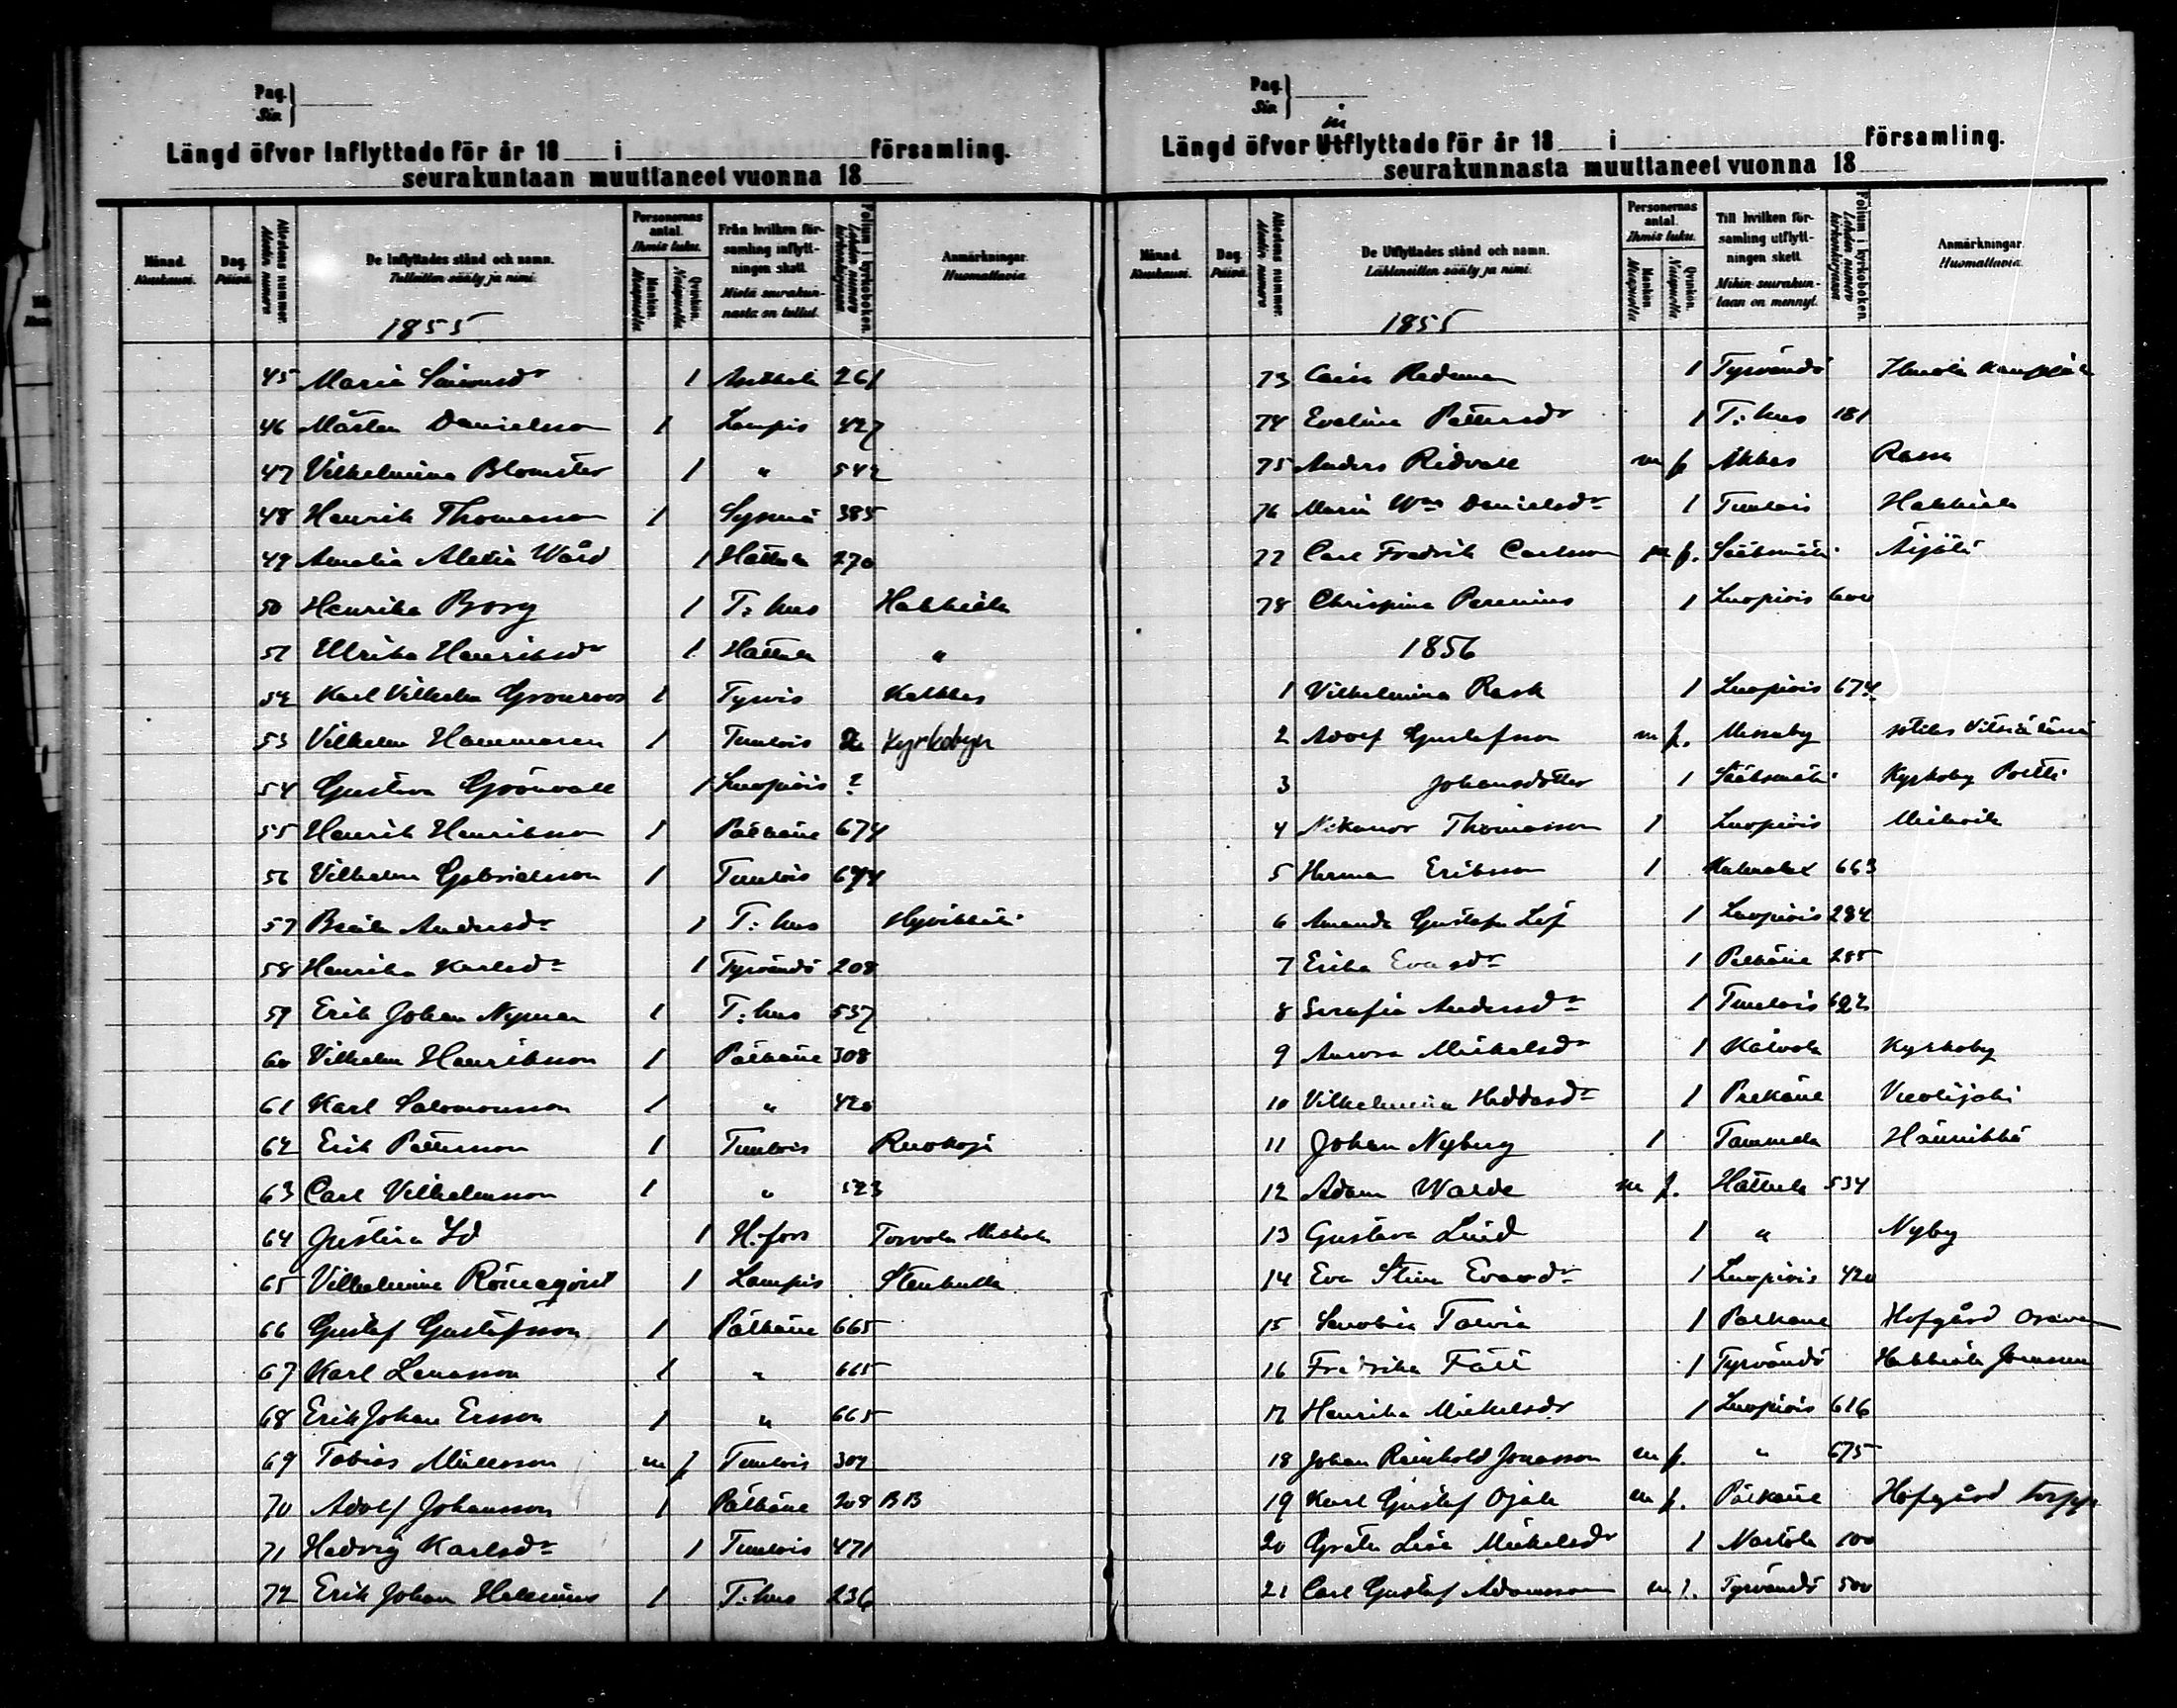 Pag.
Sir.
Längd öfver Inflyttade för år 18 i församling.
seurakuntaan muuttaneet vuonna 18
Månad. Kuukausi. Dag. Päivä. Attestens nummer. Attestin numero De Inflyttades stånd och namn. Tulleitten sääty ja nimi. Personernas antal. Ihmis luku. Mankön. Miespuolia Qvinkön. Naispuolia Från hvilken församling inflyttningen skett. Mistä seurakunnasta on tullut. Folium i kyrkoboken. Lehden numero kirkonkirjassa Anmärkningar. Huomattavia.
1855
45 Maria Simonsdr 1 Asikkala 261
46 Mårten Danielsson 1 Lampis 427
47 Vilhelmina Blomster 1 " 542
48 Henrik Thomasson 1 Sysmä 385
49 Amalia Aletia Wård 1 Hattula 270
50 Henrika Borg 1 T:hus Hakkiala
51 Ulrika Henriksdr 1 Hattula "
52 Karl Vilhelm Grönroos 1 Tyrvis Katklas
53 Vilhelm Hammaren 1 Tuulois Kyrkobyn
54 Gustava Grönvall 1 Luopiois ?
55 Henrik Henriksson 1 Pälkäne 674
56 Vilhelm Gabrielsson 1 Tuulois 674
57 Beata Andersdr 1 T:hus Hyvikkälä
58 Henrika Karlsdr 1 Tyrväntö 208
59 Erik Johan Nyman 1 T:hus 537
60 Vilhelm Henriksson 1 Pälkäne 308
61 Karl Salomonsson 1 " 420
62 Erik Pettersson 1 Tuulois Ruokoja
63 Carl Vilhelmsson 1 " 523
64 Justina Id 1 H:fors Torvola Mikkola
65 Vilhelmina Rönnqvist 1 Lampis Stenkulla
66 Gustaf Gustafsson 1 Pälkäne 665
67 Karl Lenasson 1 " 665
68 Erik Johan Ersson 1 " 665
69 Tobias Mattsson m f Tuulois 302
70 Adolf Johansson 1 Pälkäne 208 BB
71 Hedvig Karlsdr 1 Tuulois 471
72 Erik Johan Helenius 1 T:hus 236
Pag.
Sir.
in
Längd öfver Utflyttade för år 18 i församling.
seurakunnasta muuttaneet vuonna 18
Månad. Kuukausi. Dag. Päivä. Attestens nummer. Attestin numero De Utflyttades stånd och namn. Lähteneitten sääty ja nimi. Personernas antal. Ihmis luku. Mankön. Miespuolia Qvinkön. Naispuolia Till hvilken församling utflyttningen skett. Mihin seurakuntaan on mennyt. Folium i kyrkoboken. Lehden numero kirkonkirjassa Anmärkningar. Huomattavia.
1855
73 Caisa Redeman 1 Tyrväntö
74 Evelina Pettersdr 1 T:hus 181
75 Anders Ridvall m f Akkas
76 Maria Wm Danielsdr 1 Tuulois Hakkiala
77 Carl Fredrik Carlsson m f. Sääksmäki Äijälä
78 Chrispina Perenius 1 Luopiois 600
1856
1 Vilhelmina Rask 1 Luopiois 674
2 Adolf Gustafsson m f. Messuby
3 Johansdotter 1 Sääksmäki Kyrkoby Pertti
4 Nikanor Thomasson 1 Luopiois
5 Herman Eriksson 1 663
6 Amanda Gustafva Löf 1 Luopiois 284
7 Erika Evasdr 1 Pälkäne 285
8 Serafia Andersdr 1 Tuulois 692
9 Aurora Mickelsdr 1 Kalvola Kyrkoby
10 Vilhelmina Heddasdr 1 Pälkäne Vuolijoki
11 Johan Nyberg 1 Tammela Hännikkä
12 Adam Walde m f. Hattula 534
13 Gustava Lind 1 " Nyby
14 Eva Stina Evasdr 1 Luopiois 420
15 Senobia Talvia 1 Pälkäne Hofgård
16 Fredrika Fält 1 Tyrväntö Hakkiala
17 Henrika Mickelsdr 1 Luopiois 616
18 Johan Reinhold Jonasson m f. " 675
19 Karl Gustaf Ojala m f. Pälkäne Hofgård torpp
20 Greta Lisa Mickelsdr 1 Nastola 100
21 Carl Gustaf Adamsson m f. Tyrväntö 500